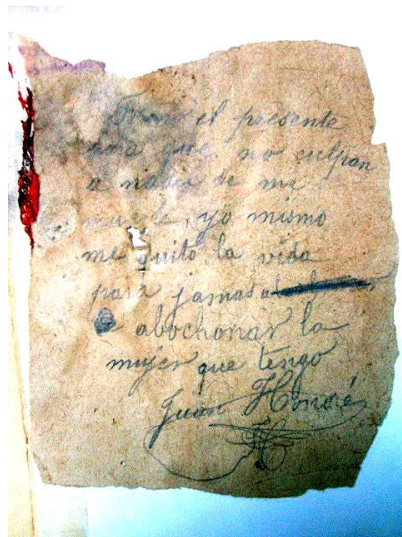 Firmo el presente
para que no culpan
a nadie de mi
muerte, yo mismo
me quito la vida
para jamas a
abochonar la
mujer que tengo
Juan Honoré